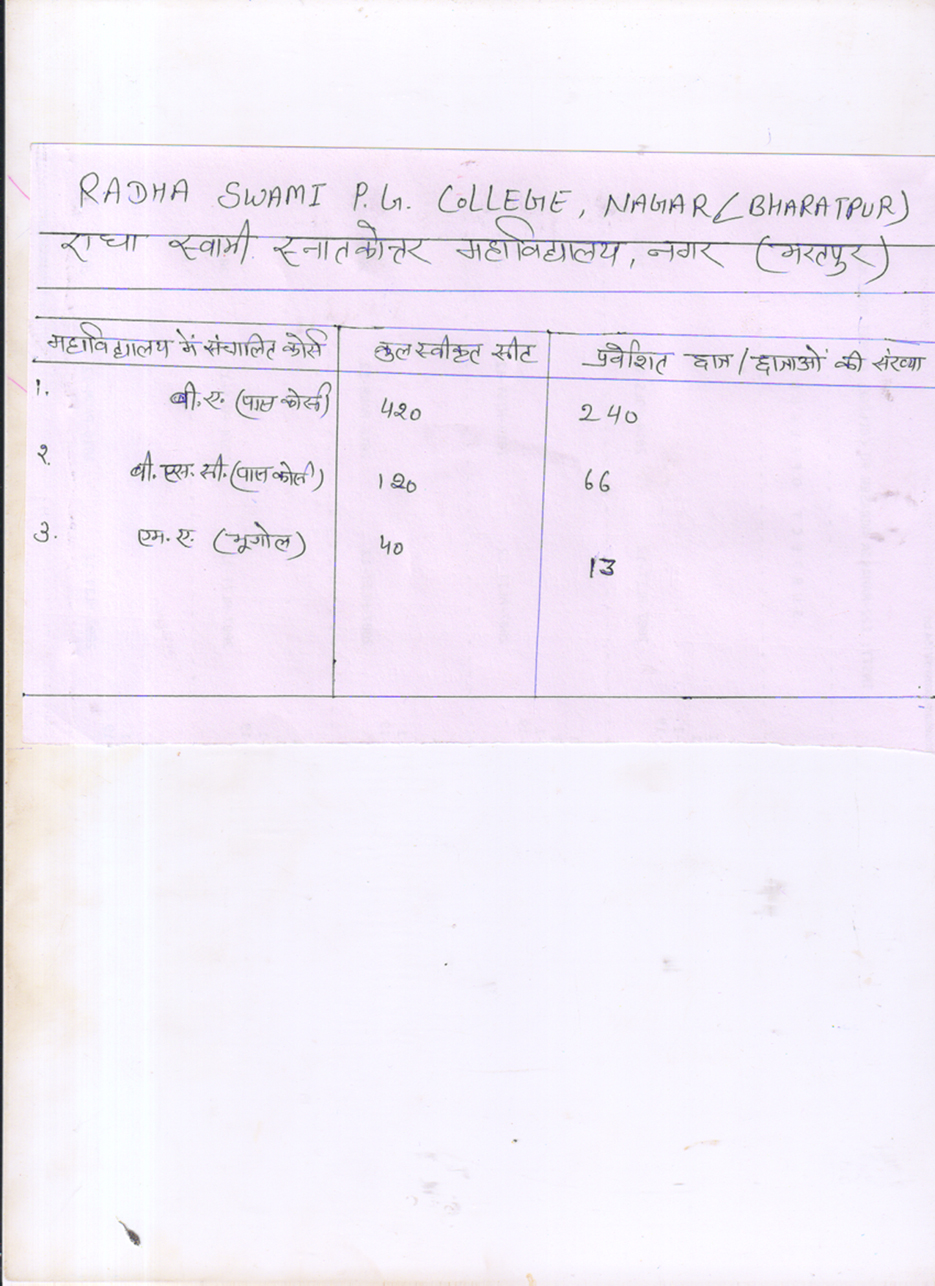 RADHA SWAMI P.G. COLLEGE, NAGAR (BHARATPUR)
राधा स्वामी स्नातकोत्तर महाविद्यालय, नगर (भरतपुर)
महाविद्यालय में संचालित कोर्स कुल स्वीकृत सीट प्रवेशित छात्र/छात्राओं की संख्या
1. बी.ए. (पास कोर्स) 420 240
2. बी.एस.सी. (पास कोर्स) 120 66
3. एम.ए. (भूगोल) 40 13